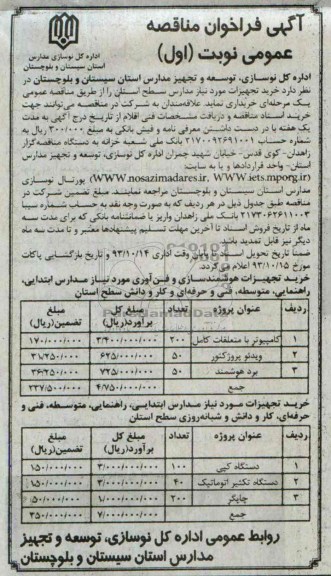 آگهی فراخوان مناقصه
عمومی نوبت (اول)
اداره کل نوسازی مدارس
استان سیستان و بلوچستان
اداره کل نوسازی، توسعه و تجهیز مدارس استان سیستان و بلوچستان در
نظر دارد خرید تجهیزات مورد نیاز مدارس سطح استان را از طریق مناقصه عمومی
یک مرحله‌ای خریداری نماید. علاقمندان به شرکت در مناقصه می‌توانند جهت
خرید اسناد مناقصه و دریافت مشخصات فنی اقلام از تاریخ درج آگهی به مدت
یک هفته با در دست داشتن معرفی نامه و فیش بانکی به مبلغ ۳۰۰/۰۰۰ ریال به
شماره حساب ۲۱۷۰۰۹۲۶۹۱۰۰۱ بانک ملی شعبه خزانه به دستگاه مناقصه‌گزار
زاهدان- کوی قدس- خیابان شهید چمران اداره کل نوسازی، توسعه و تجهیز مدارس
استان- واحد قراردادها و یا به سایت:
(WWW.nosazimadares.ir، WWW.iets.mporg.ir) پورتال نوسازی
مدارس استان سیستان و بلوچستان مراجعه نمایند. مبلغ تضمین شرکت در
مناقصه طبق جدول ذیل در هر ردیف که به صورت وجه نقد به حساب شماره سیبا
۲۱۷۳۰۶۲۶۱۱۰۰۳ بانک ملی زاهدان واریز یا ضمانتنامه بانکی که برای مدت سه
ماه از تاریخ فروش اسناد تا آخرین مهلت تسلیم پیشنهادها معتبر و تا مدت سه ماه
دیگر نیز قابل تمدید باشد.
ضمنا تاریخ تحویل اسناد تا آخر وقت اداری ۹۳/۱۰/۱۴ و تاریخ بازگشایی پاکات
مورخ ۹۳/۱۰/۱۵ اعلام می‌گردد.
خرید تجهیزات هوشمندسازی و فن‌آوری مورد نیاز مدارس ابتدایی،
راهنمایی، متوسطه، فنی و حرفه‌ای و کار و دانش سطح استان
ردیف عنوان پروژه تعداد مبلغ کل برآورد(ریال) مبلغ تضمین(ریال)
۱ کامپیوتر با متعلقات کامل ۲۰۰ ۳/۴۰۰/۰۰۰/۰۰۰ ۱۷۰/۰۰۰/۰۰۰
۲ ویدئو پروژکتور ۵۰ ۶۲۵/۰۰۰/۰۰۰ ۳۱/۲۵۰/۰۰۰
۳ برد هوشمند ۵۰ ۷۲۵/۰۰۰/۰۰۰ ۳۶/۲۵۰/۰۰۰
جمع ۴/۷۵۰/۰۰۰/۰۰۰ ۲۳۷/۵۰۰/۰۰۰
خرید تجهیزات مورد نیاز مدارس ابتدایی، راهنمایی، متوسطه، فنی و
حرفه‌ای، کار و دانش و شبانه‌روزی سطح استان
ردیف عنوان پروژه تعداد مبلغ کل برآورد(ریال) مبلغ تضمین(ریال)
۱ دستگاه کپی ۱۰۰ ۳/۰۰۰/۰۰۰/۰۰۰ ۱۵۰/۰۰۰/۰۰۰
۲ دستگاه تکثیر اتوماتیک ۴۰ ۳/۰۰۰/۰۰۰/۰۰۰ ۱۵۰/۰۰۰/۰۰۰
۳ چاپگر ۲۰۰ ۱/۰۰۰/۰۰۰/۰۰۰ ۵۰/۰۰۰/۰۰۰
جمع ۷/۰۰۰/۰۰۰/۰۰۰ ۳۵۰/۰۰۰/۰۰۰
روابط عمومی اداره کل نوسازی، توسعه و تجهیز
مدارس استان سیستان و بلوچستان